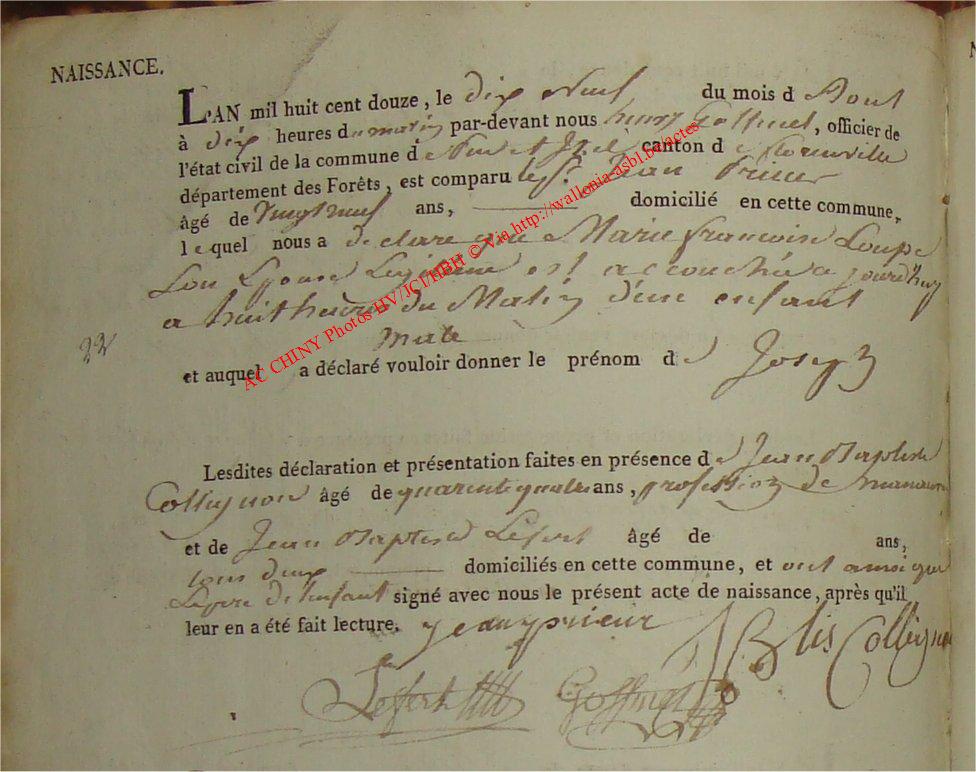 NAISSANCE.
LAN mil huit cent douze, le dix neuf du mois d Aout
à dix heures du matin par-devant nous henry Goffinet, officier de
l'état civil de la commune d e Pin et Izel canton d e florenville
département des Forêts, est comparu le Sr. Jean Prieur
âgé de Vingt neuf ans, domicilié en cette commune,
lequel nous a declaré que Marie francoise Loupe
Son Epouse Legitime est accouchée a jourd'huy
a huit heures du Matin d'une enfant
male
22
et auquel a déclaré vouloir donner le prénom d e Joseph
Lesdites déclaration et présentation faites en présence d e Jean Baptiste
Collignon âgé de quarente quatre ans, profession de manouvre
et de Jean Baptiste Lefert âgé de ans,
tous deux domiciliés en cette commune, et ont ainsi que
Le pere de l'enfant signé avec nous le présent acte de naissance, après qu'il
leur en a été fait lecture. jean prieur J B tis Collignon
Lefert Goffinet
AC CHINY Photos HV/JCI/HBH © Via http://wallonia-asbl.be/actes